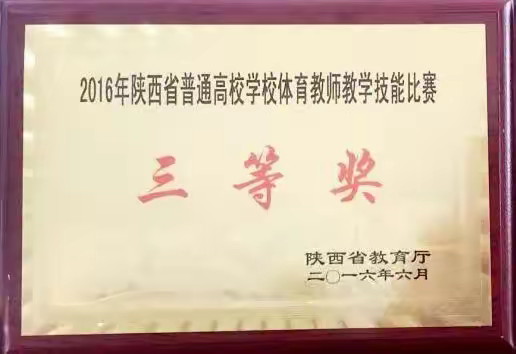 2016年陕西省普通高校学校体育教师教学技能比赛
三等奖
陕西省教育厅
二〇一六年六月